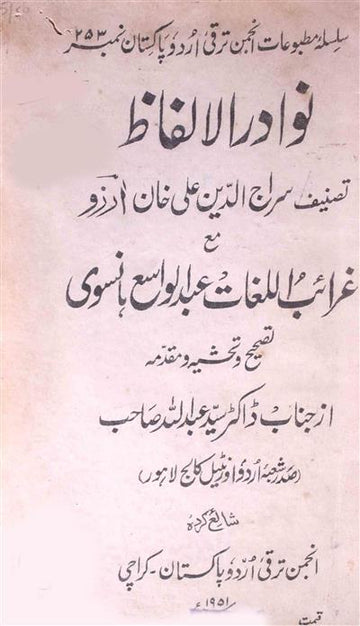 سلسلۂ مطبوعات انجمن ترقی اُردو پاکستان نمبر ۲۵۳
نوادر الالفاظ
تصنیف سراج الدّین علی خان آرزو
مع
غرائبُ اللغات عبدالواسع ہانسوی
تصحیح و تحشیہ و مقدّمہ
از جناب ڈاکٹر سیّد عبداللہ صاحب
(صدر شعبۂ اُردو اورنٹیل کالج لاہور)
شائع کردہ
انجمن ترقی اُردو پاکستان - کراچی
۱۹۵۱ء
قیمت